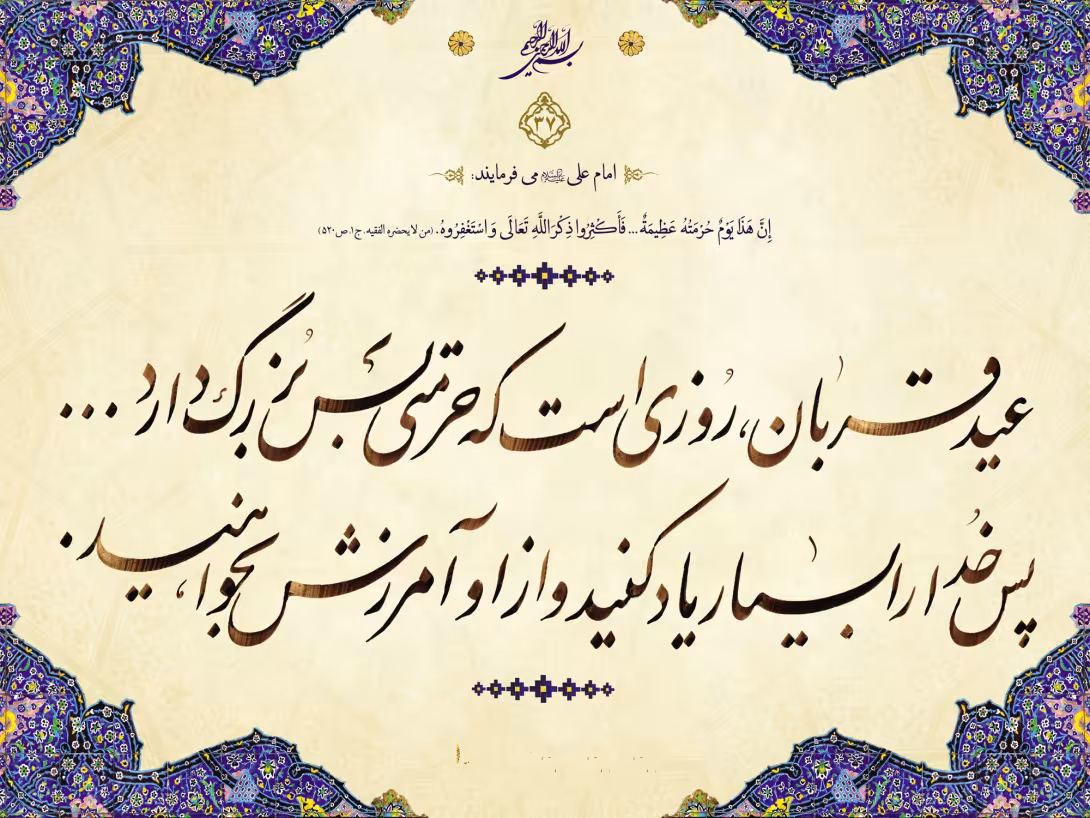 بسم الله الرحمن الرحیم
۳۷
امام علی علیه‌السلام می فرمایند:
إِنَّ هَذَا يَوْمٌ حُرْمَتُهُ عَظِيمَةٌ... فَأَكْثِرُوا ذِكْرَ اللَّهِ تَعَالَى وَ اسْتَغْفِرُوهُ. (من لا یحضره الفقیه، ج۱، ص۵۲۰)
عید قربان، رُوزی است که حرمتی بس بُزرگ دارد ...
پس خُدا را بسیار یاد کنید و از او آمرزش بخواهید.